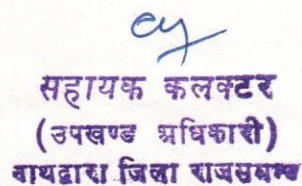 सहायक कलक्टर
(उपखण्ड अधिकारी)
नाथद्वारा जिला राजसमन्द